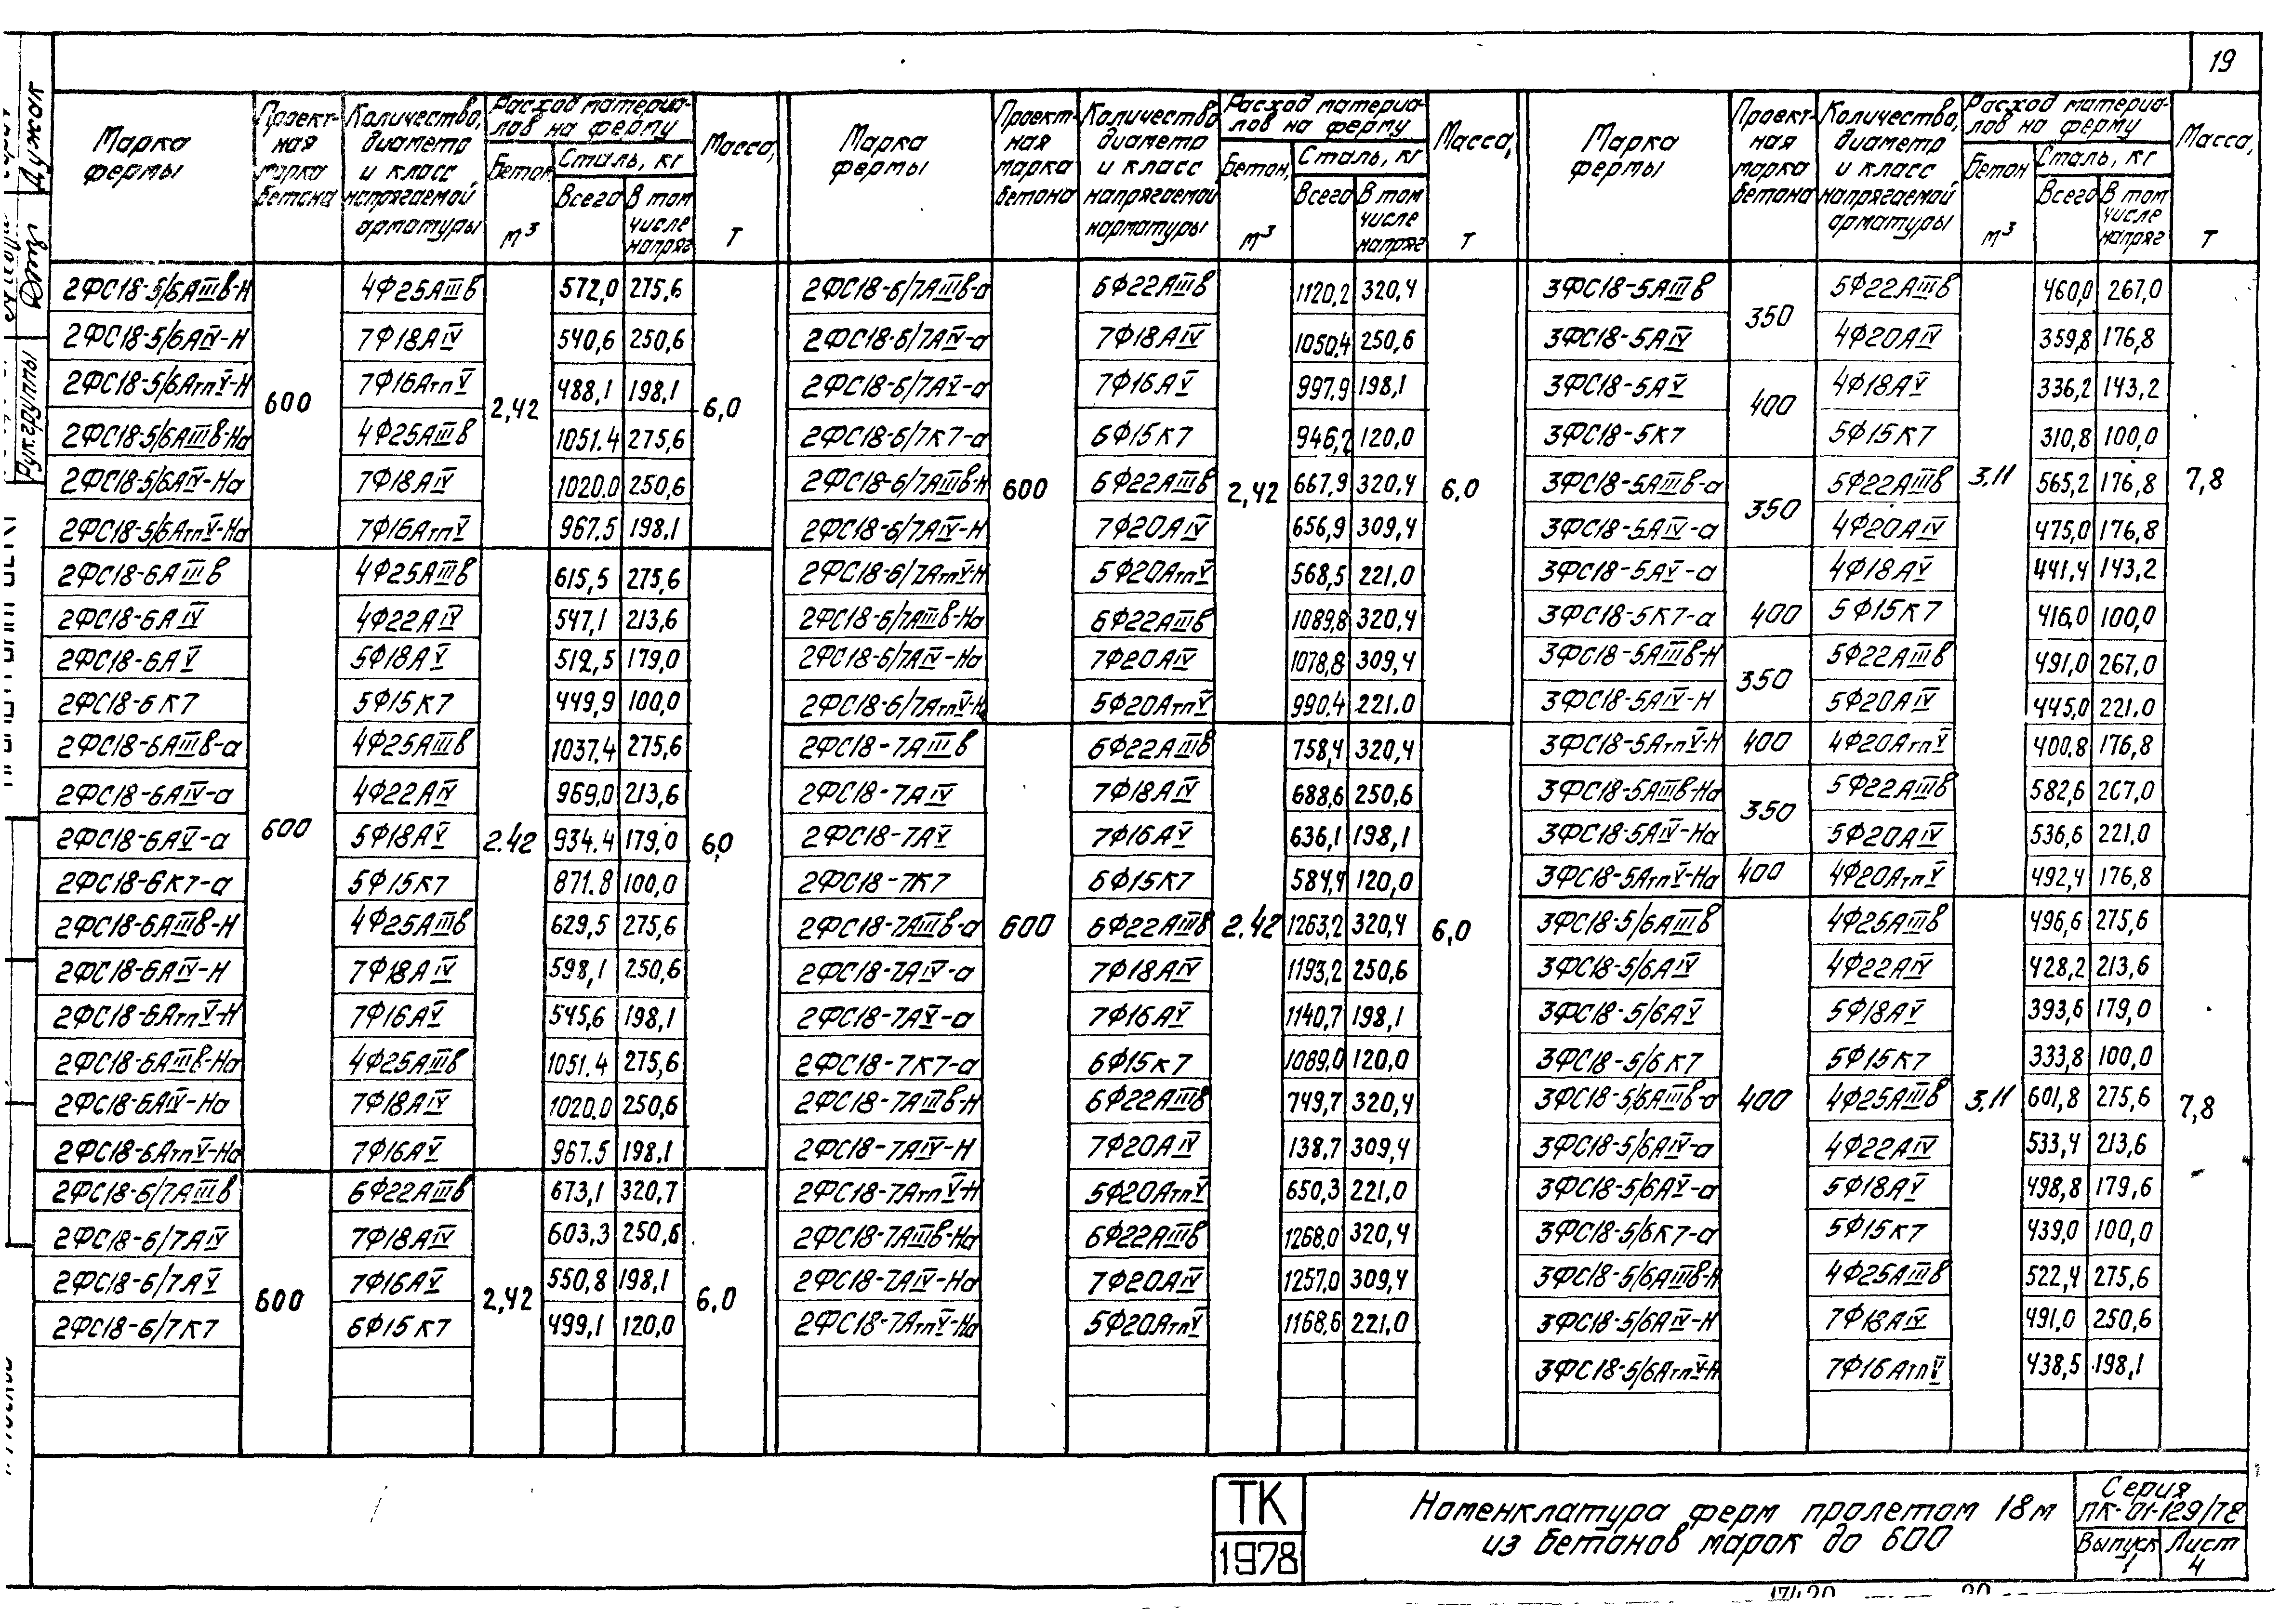 19
Марка фермы | Проектная марка бетона | Количество, диаметр и класс напрягаемой арматуры | Расход материалов на ферму | Масса, т
Бетон, м³ | Сталь, кг
Всего | В том числе напряг
2ФС18-5/6АIIIв-Н | 600 | 4Ф25АIIIв | 2,42 | 572,0 | 275,6 | 6,0
2ФС18-5/6АIV-Н | 7Ф18АIV | 540,6 | 250,6
2ФС18-5/6АтпV-Н | 7Ф16АтпV | 488,1 | 198,1
2ФС18-5/6АIIIв-На | 4Ф25АIIIв | 1051.4 | 275,6
2ФС18-5/6АIV-На | 7Ф18АIV | 1020.0 | 250,6
2ФС18-5/6АтпV-На | 7Ф16АтпV | 967.5 | 198.1
2ФС18-6АIIIв | 600 | 4Ф25АIIIв | 2.42 | 615,5 | 275,6 | 6,0
2ФС18-6АIV | 4Ф22АIV | 547,1 | 213,6
2ФС18-6АV | 5Ф18АV | 512,5 | 179,0
2ФС18-6К7 | 5Ф15К7 | 449,9 | 100,0
2ФС18-6АIIIв-а | 4Ф25АIIIв | 1037.4 | 275,6
2ФС18-6АIV-а | 4Ф22АIV | 969,0 | 213,6
2ФС18-6АV-а | 5Ф18АV | 934.4 | 179,0
2ФС18-6К7-а | 5Ф15К7 | 871.8 | 100,0
2ФС18-6АIIIв-Н | 4Ф25АIIIв | 629,5 | 275,6
2ФС18-6АIV-Н | 7Ф18АIV | 598,1 | 250,6
2ФС18-6АтпV-Н | 7Ф16АV | 545,6 | 198,1
2ФС18-6АIIIв-На | 4Ф25АIIIв | 1051.4 | 275,6
2ФС18-6АIV-На | 7Ф18АIV | 1020.0 | 250,6
2ФС18-6АтпV-На | 7Ф16АV | 967.5 | 198.1
2ФС18-6/7АIIIв | 600 | 6Ф22АIIIв | 2,42 | 673,1 | 320,7 | 6,0
2ФС18-6/7АIV | 7Ф18АIV | 603,3 | 250,6
2ФС18-6/7АV | 7Ф16АV | 550,8 | 198,1
2ФС18-6/7К7 | 6Ф15К7 | 499,1 | 120,0
Марка фермы | Проектная марка бетона | Количество диаметр и класс напрягаемой нарматуры | Расход материалов на ферму | Масса, т
Бетон, м³ | Сталь, кг
Всего | В том числе напряг
2ФС18-6/7АIIIв-а | 600 | 6Ф22АIIIв | 2,42 | 1120,2 | 320,4 | 6,0
2ФС18-6/7АIV-а | 7Ф18АIV | 1050.4 | 250,6
2ФС18-6/7АV-а | 7Ф16АV | 997.9 | 198,1
2ФС18-6/7К7-а | 6Ф15К7 | 946,2 | 120,0
2ФС18-6/7АIIIв-Н | 6Ф22АIIIв | 667,9 | 320,4
2ФС18-6/7АIV-Н | 7Ф20АIV | 656,9 | 309,4
2ФС18-6/7АтпV-Н | 5Ф20АтпV | 568,5 | 221.0
2ФС18-6/7АIIIв-На | 6Ф22АIIIв | 1089,8 | 320,4
2ФС18-6/7АIV-На | 7Ф20АIV | 1078,8 | 309,4
2ФС18-6/7АтпV-На | 5Ф20АтпV | 990.4 | 221.0
2ФС18-7АIIIв | 600 | 6Ф22АIIIв | 2.42 | 758,4 | 320,4 | 6,0
2ФС18-7АIV | 7Ф18АIV | 688,6 | 250,6
2ФС18-7АV | 7Ф16АV | 636,1 | 198,1
2ФС18-7К7 | 6Ф15К7 | 584,4 | 120,0
2ФС18-7АIIIв-а | 6Ф22АIIIв | 1263,2 | 320,4
2ФС18-7АIV-а | 7Ф18АIV | 1193,2 | 250,6
2ФС18-7АV-а | 7Ф16АV | 1140,7 | 198,1
2ФС18-7К7-а | 6Ф15К7 | 1089,0 | 120,0
2ФС18-7АIIIв-Н | 6Ф22АIIIв | 749,7 | 320,4
2ФС18-7АIV-Н | 7Ф20АIV | 138,7 | 309,4
2ФС18-7АтпV-Н | 5Ф20АтпV | 650,3 | 221,0
2ФС18-7АIIIв-На | 6Ф22АIIIв | 1268,0 | 320,4
2ФС18-7АIV-На | 7Ф20АIV | 1257,0 | 309,4
2ФС18-7АтпV-На | 5Ф20АтпV | 1168,6 | 221,0
Марка фермы | Проектная марка бетона | Количество, диаметр и класс напрягаемой арматуры | Расход материалов на ферму | Масса, т
Бетон м³ | Сталь, кг
Всего | В том числе напряг
3ФС18-5АIIIв | 350 | 5Ф22АIIIв | 3.11 | 460,0 | 267,0 | 7,8
3ФС18-5АIV | 4Ф20АIV | 359,8 | 176,8
3ФС18-5АV | 400 | 4Ф18АV | 336,2 | 143,2
3ФС18-5К7 | 5Ф15К7 | 310,8 | 100,0
3ФС18-5АIIIв-а | 350 | 5Ф22АIIIв | 565,2 | 176,8
3ФС18-5АIV-а | 4Ф20АIV | 475,0 | 176,8
3ФС18-5АV-а | 400 | 4Ф18АV | 441,4 | 143,2
3ФС18-5К7-а | 5Ф15К7 | 416,0 | 100,0
3ФС18-5АIIIв-Н | 350 | 5Ф22АIIIв | 491,0 | 267,0
3ФС18-5АIV-Н | 5Ф20АIV | 445,0 | 221.0
3ФС18-5АтпV-Н | 400 | 4Ф20АтпV | 400.8 | 176,8
3ФС18-5АIIIв-На | 350 | 5Ф22АIIIв | 582,6 | 267,0
3ФС18-5АIV-На | 5Ф20АIV | 536,6 | 221,0
3ФС18-5АтпV-На | 400 | 4Ф20АтпV | 492,4 | 176,8
3ФС18-5/6АIIIв | 400 | 4Ф25АIIIв | 3.11 | 496,6 | 275,6 | 7,8
3ФС18-5/6АIV | 4Ф22АIV | 428,2 | 213,6
3ФС18-5/6АV | 5Ф18АV | 393,6 | 179,0
3ФС18-5/6К7 | 5Ф15К7 | 333,8 | 100,0
3ФС18-5/6АIIIв-а | 4Ф25АIIIв | 601,8 | 275,6
3ФС18-5/6АIV-а | 4Ф22АIV | 533,4 | 213,6
3ФС18-5/6АV-а | 5Ф18АV | 498,8 | 179,6
3ФС18-5/6К7-а | 5Ф15К7 | 439,0 | 100,0
3ФС18-5/6АIIIв-Н | 4Ф25АIIIв | 522,4 | 275,6
3ФС18-5/6АIV-Н | 7Ф18АIV | 491,0 | 250,6
3ФС18-5/6АтпV-Н | 7Ф16АтпV | 438,5 | 198,1
Рук.группы
Дужак
ТК
1978
Номенклатура ферм пролетом 18м
из бетонов марок до 600
Серия
ПК-01-129/78
Выпуск 1
Лист 4